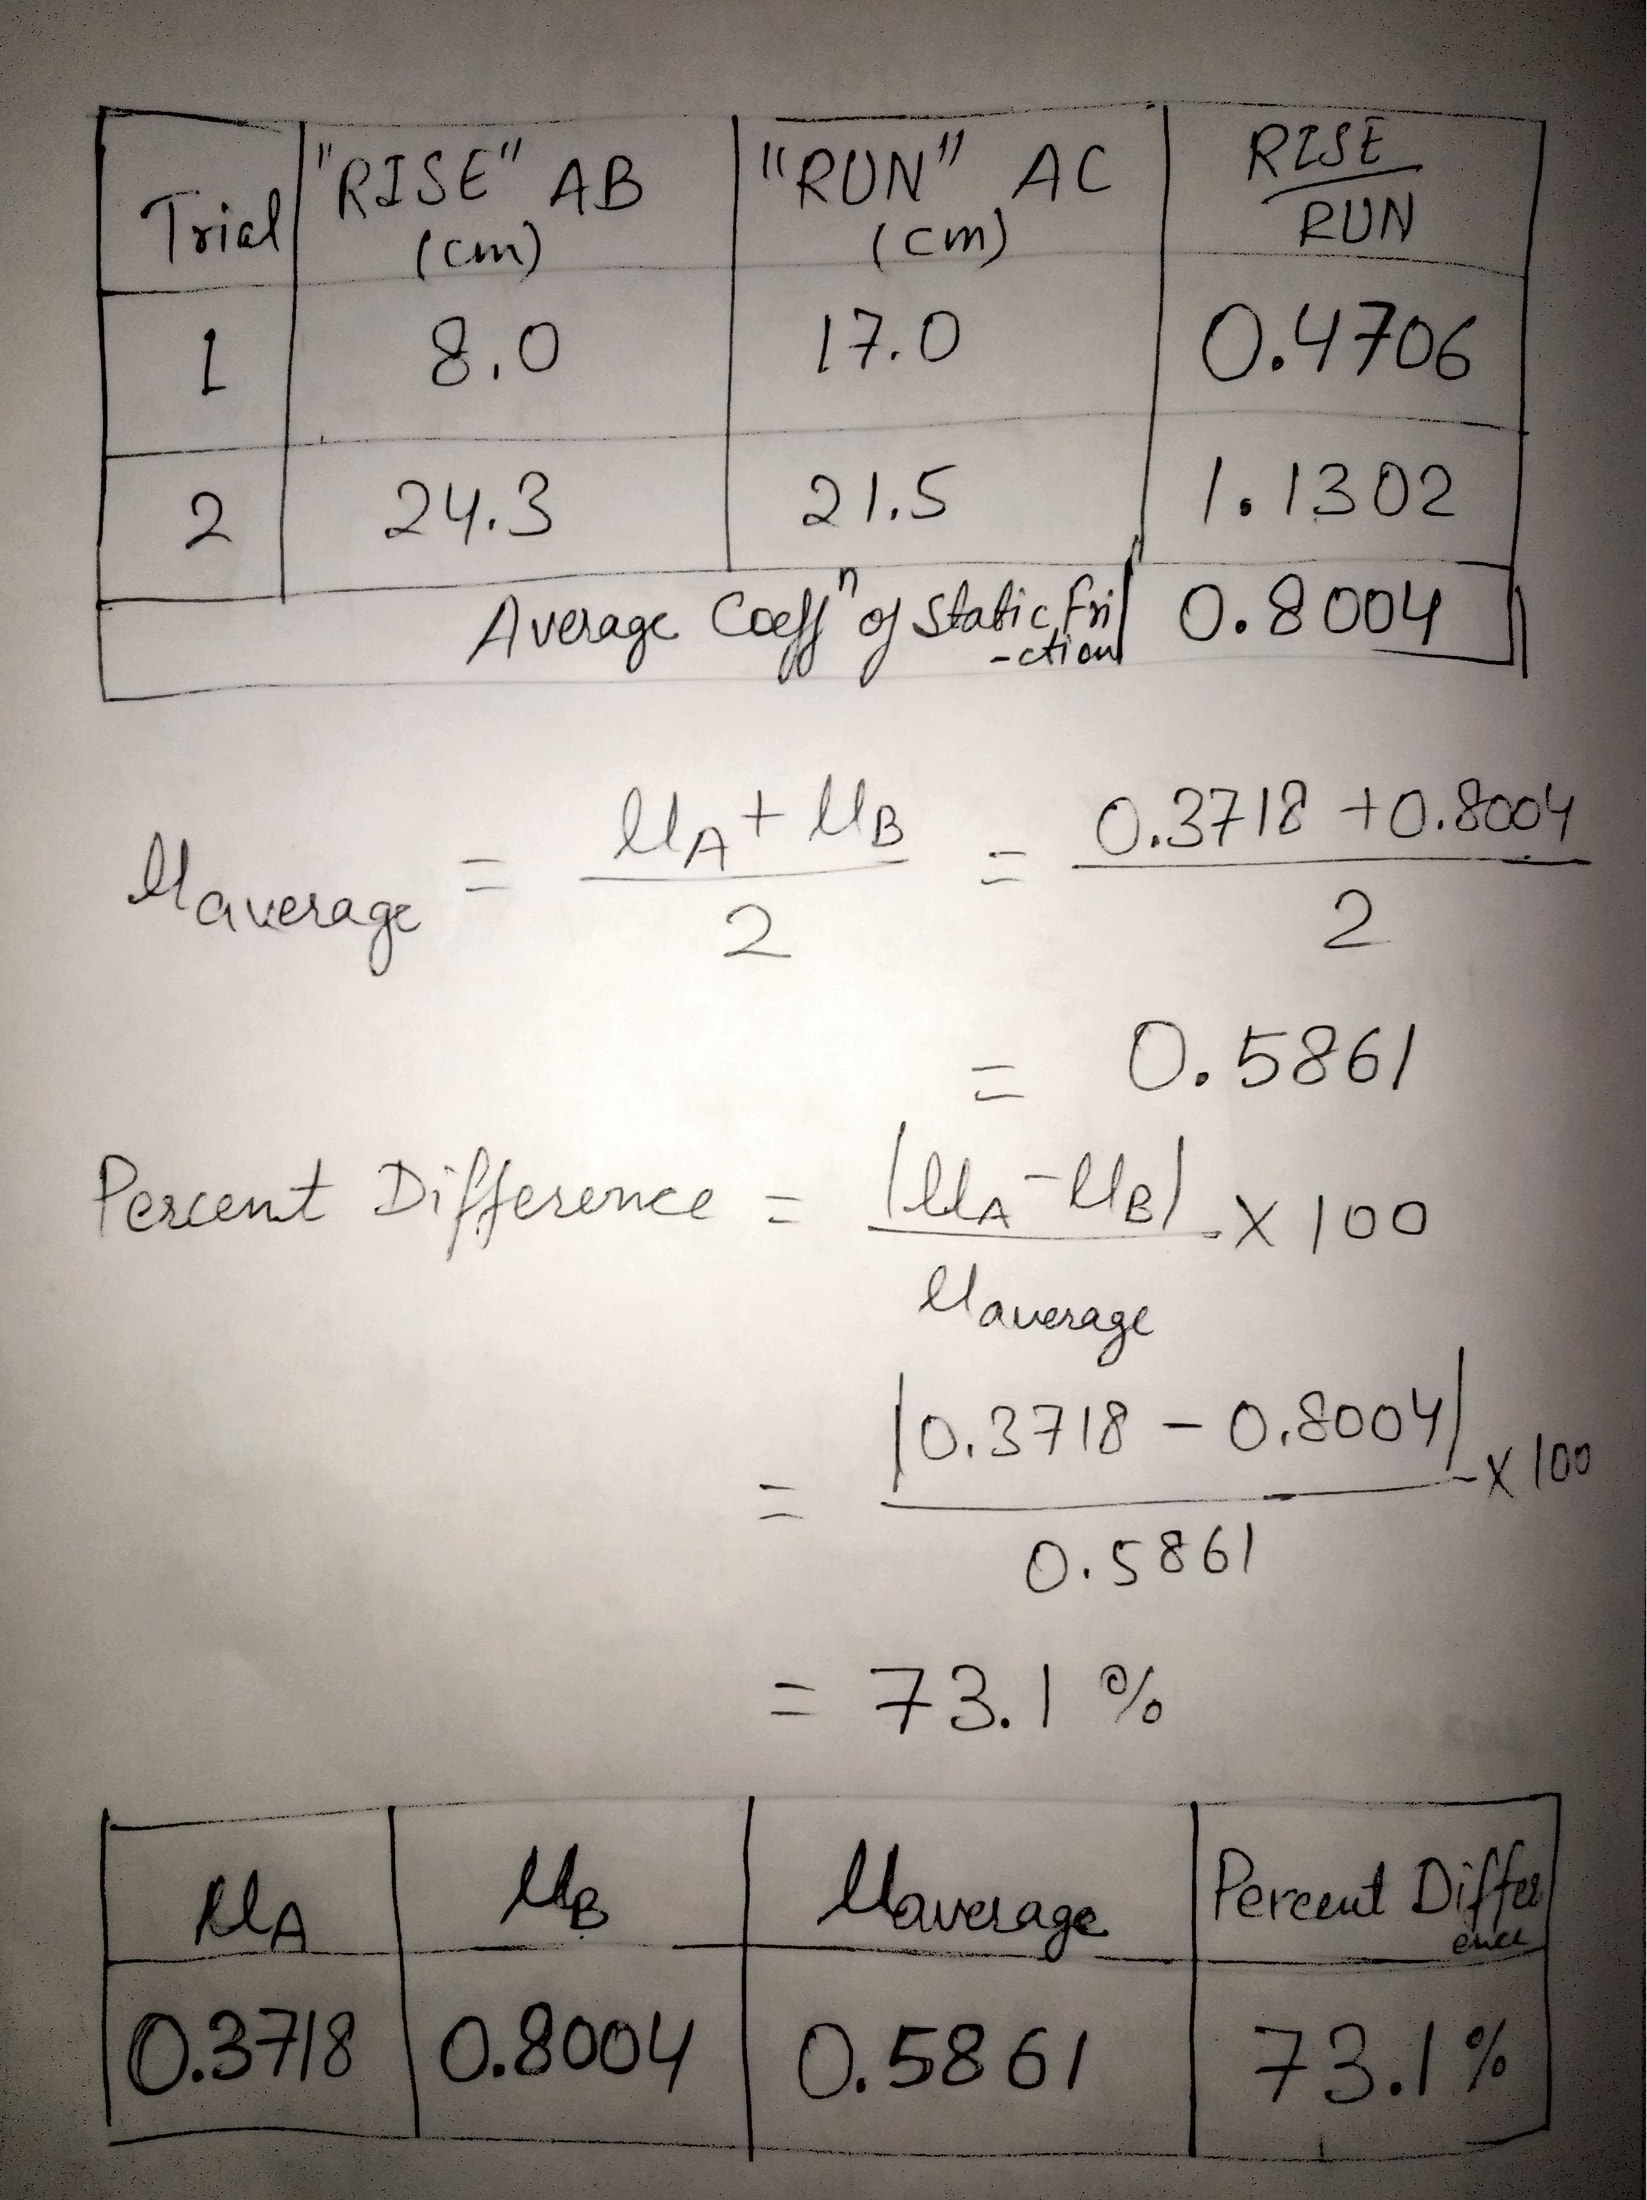 Trial "RISE" AB (cm) "RUN" AC (cm) RISE/RUN
1 8.0 17.0 0.4706
2 24.3 21.5 1.1302
Average Coeffⁿ of Static Fri-ction 0.8004
μaverage = (μA + μB)/2 = (0.3718 + 0.8004)/2
= 0.5861
Percent Difference = |μA - μB|/μaverage × 100
= |0.3718 - 0.8004|/0.5861 × 100
= 73.1 %
μA μB μaverage Percent Difference
0.3718 0.8004 0.5861 73.1%